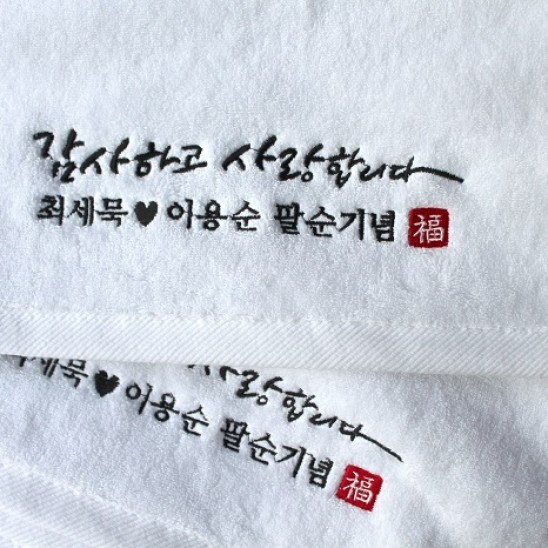 감사하고 사랑합니다
최세묵♥이용순 팔순기념 福
사랑합니다
세묵♥이용순 팔순기념 福